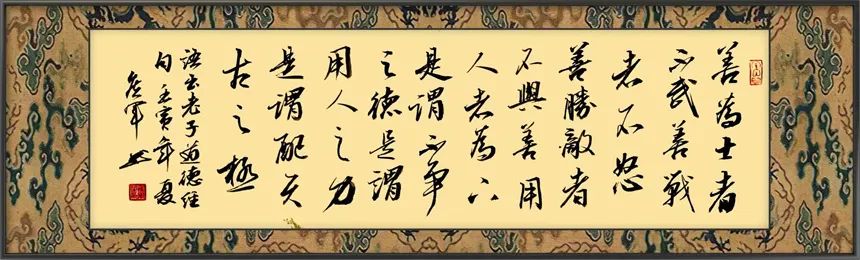 善為士者
不武善戰
者不怒
善勝敵者
不與善用
人者為下
是謂不爭
之德是謂
用人之力
是謂配天
古之極
语出老子道德经
句壬寅年夏
军书